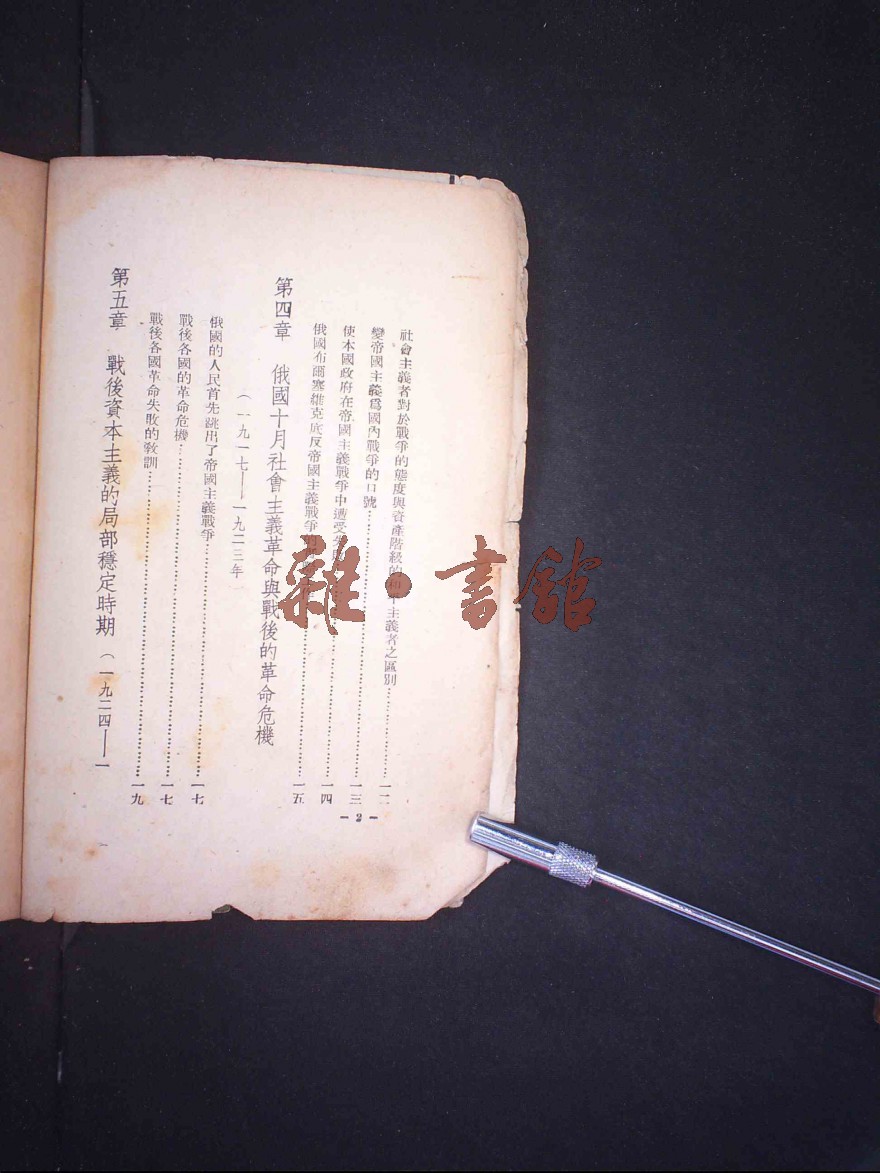 社會主義者對於戰爭的態度與資產階級的和平主義者之區別……一二
變帝國主義爲國內戰爭的口號……一三
使本國政府在帝國主義戰爭中遭受……一四
俄國布爾塞維克底反帝國主義戰爭……一五
第四章 俄國十月社會主義革命與戰後的革命危機
（一九一七——一九二三年）
俄國的人民首先跳出了帝國主義戰爭……一七
戰後各國的革命危機……一七
戰後各國革命失敗的敎訓……一九
第五章 戰後資本主義的局部穩定時期（一九二四——一
- 2 -
雜·書館